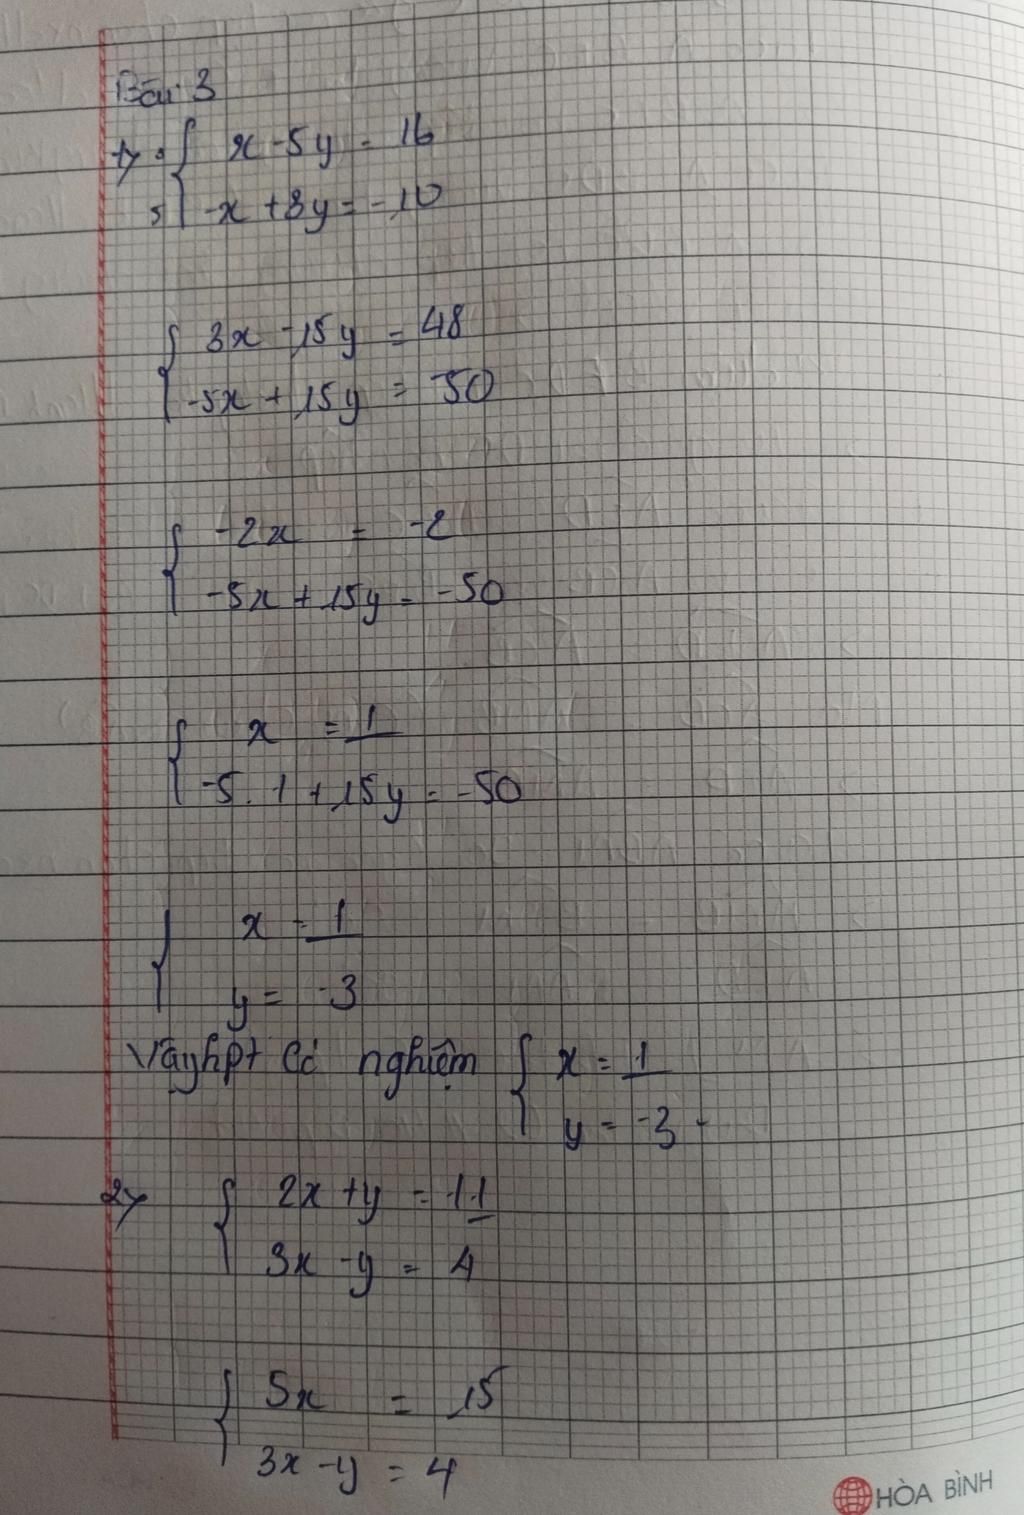 Bài 3
1, { x - 5y = 16
{ -x + 3y = -10
{ 3x - 15y = 48
{ -5x + 15y = -50
{ -2x = -2
{ -5x + 15y = -50
{ x = 1
{ -5 . 1 + 15y = -50
{ x = 1
{ y = -3
Vậy hpt có nghiệm { x = 1
{ y = -3
2, { 2x + y = 11
{ 3x - y = 4
{ 5x = 15
{ 3x - y = 4
HÒA BÌNH